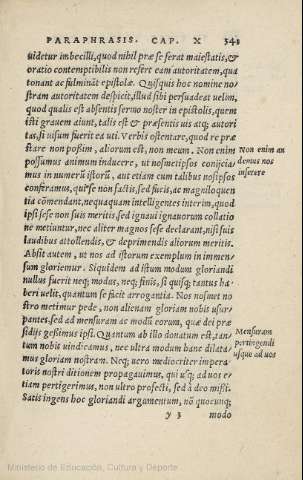 PARAPHRASIS. CAP. X 341
uidetur imbecilli, quod nihil præ se ferat maiestatis, &
oratio contemptibilis non refere eam autoritatem, qua
tonant ac fulminãt epistolæ. Quisquis hoc nomine no=
stram autoritatem despicit, illud sibi persuadeat uelim,
quod qualis est absentis sermo noster in epistolis, quem
isti grauem aiunt, talis est & præsentis uis atq; autori
tas, si usum fuerit ea uti. Verbis ostentare, quod re præ
stare non poßim, aliorum est, non meum. Non enim
possumus animum inducere, ut nosmetipsos conijcia=
mus in numerũ istorũ, aut etiam cum talibus nosipsos
conferamus, qui se non factis, sed fucis, ac magniloquen
tia cõmendant, nequaquam intelligentes interim, quod
ipsi sese non suis meritis, sed ignaui ignauorum collatio
ne metiuntur, nec aliter magnos sese declarant, nisi suis
laudibus attollendis, & deprimendis aliorum meritis.
Absit autem, ut nos ad istorum exemplum in immen=
sum gloriemur. Siquidem ad istum modum gloriandi
nullus fuerit neq; modus, neq; finis, si quisq; tantus ha=
beri uelit, quantum se facit arrogantia. Nos nosmet no
stro metimur pede, non alienam gloriam nobis usur=
pantes, sed ad mensuram ac modũ eorum, quæ dei præ
sidijs geßimus ipsi. Quantum ab illo donatum est, tan=
tum nobis uindicamus, nec ultra modum hanc dilata=
mus gloriam nostram. Neq; uero mediocriter impera=
toris nostri ditionem propagauimus, qui usq; ad uos e=
tiam pertigerimus, non ultro profecti, sed à deo mißi.
Satis ingens hoc gloriandi argumentum, nõ quocunq;
y 3 modo
Non enim au
demus nos
inserere
Mensuram
pertingendi
usque ad uos
Ministerio de Educación, Cultura y Deporte